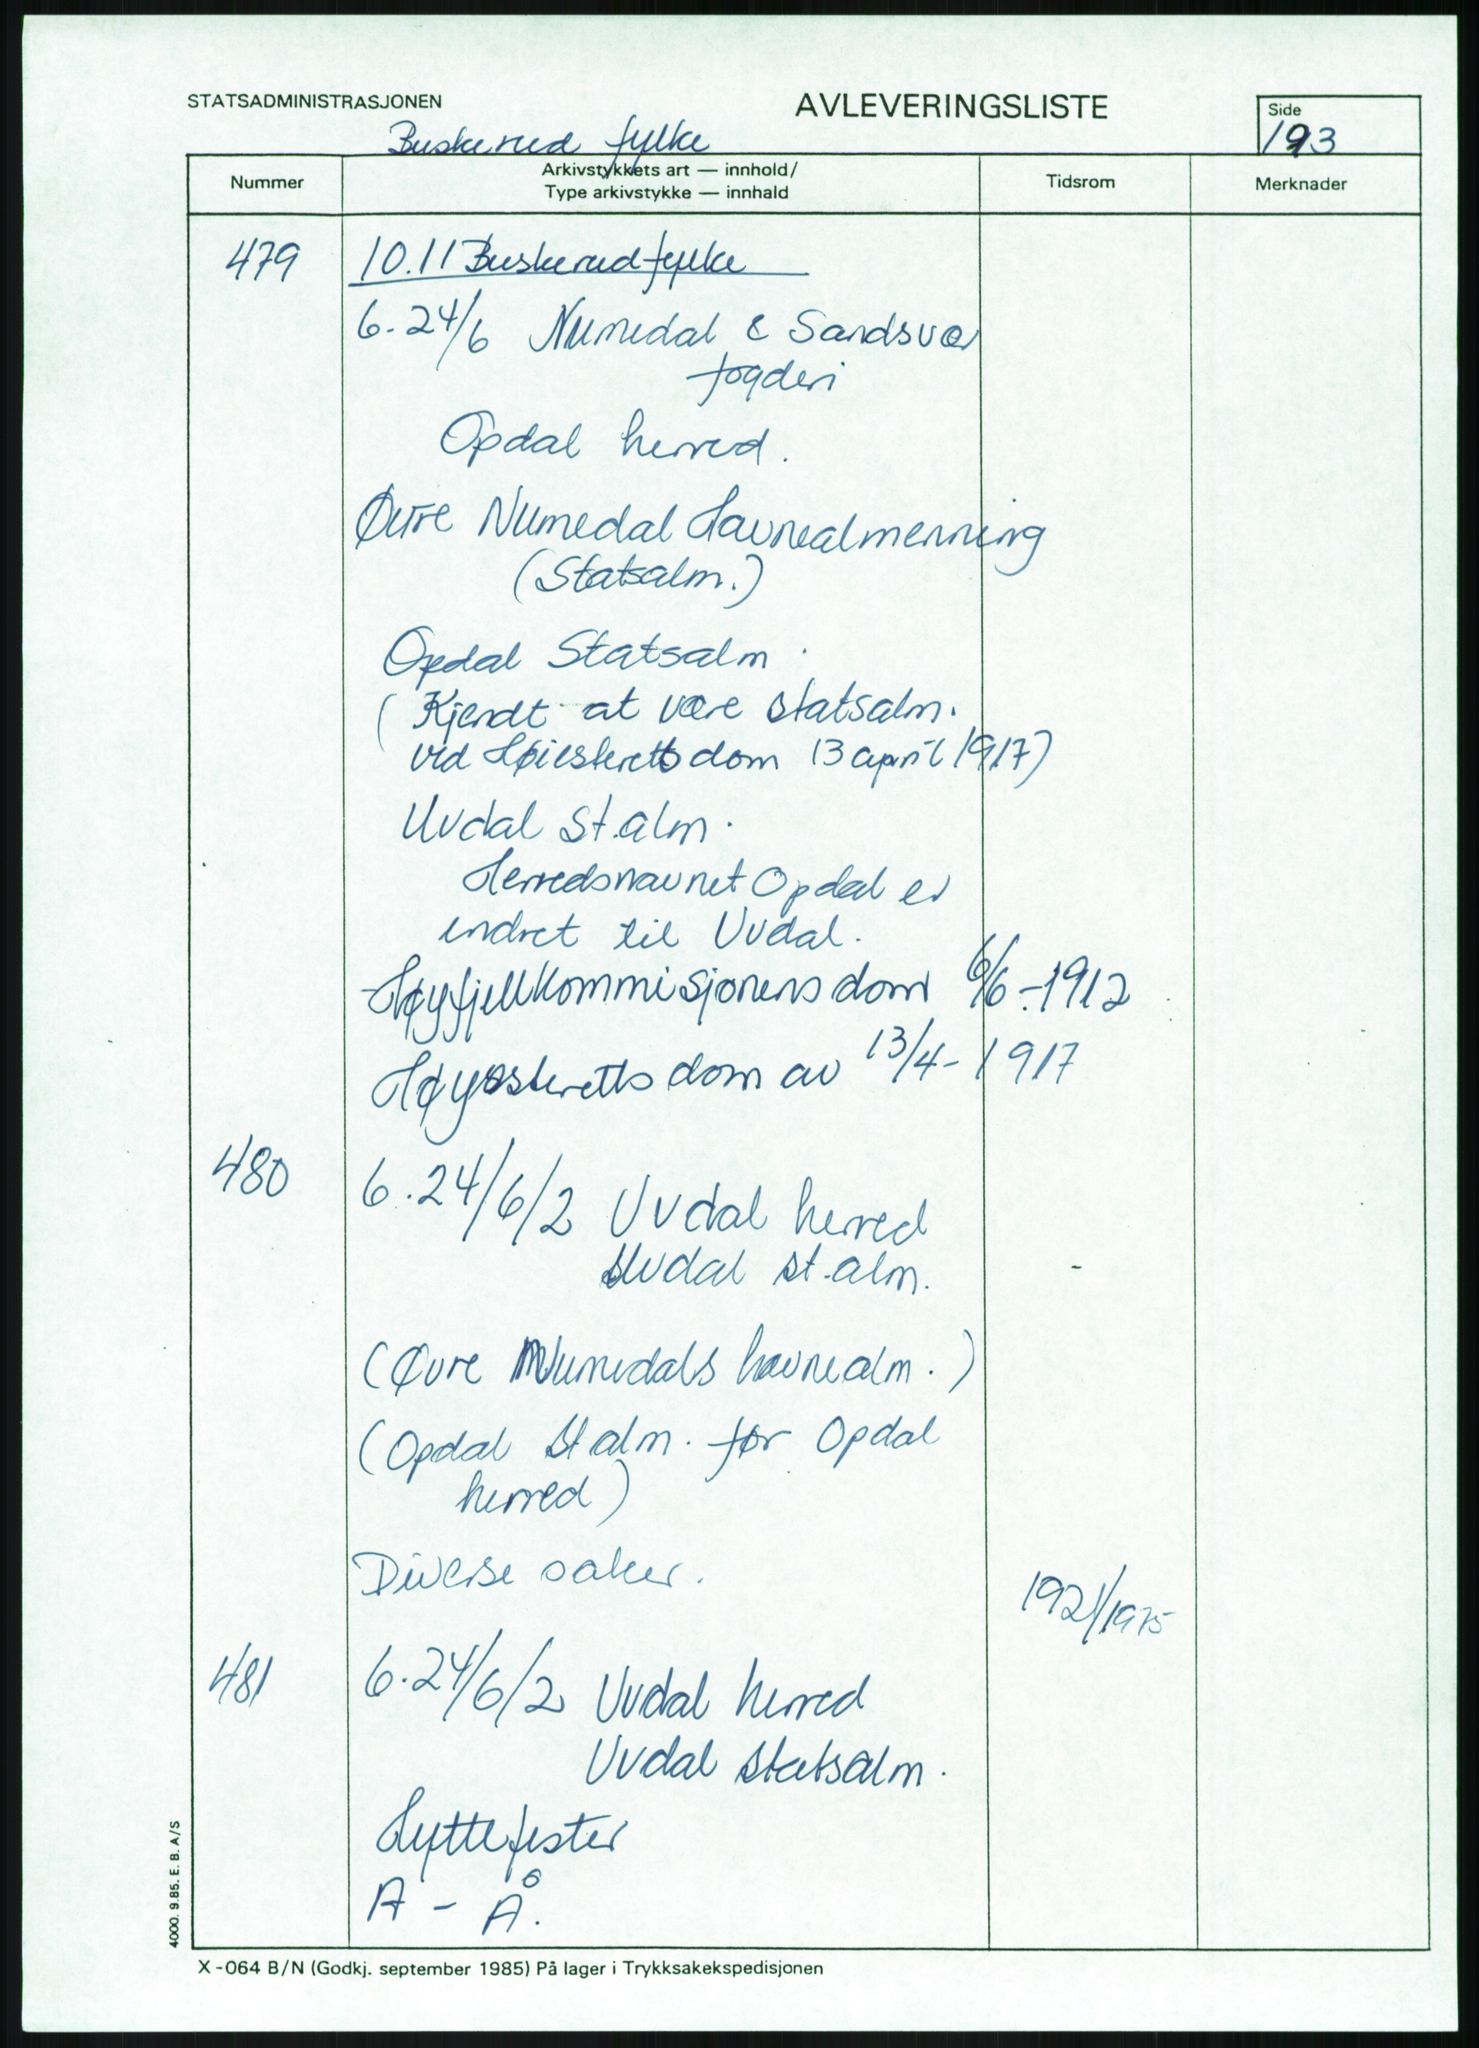 STATSADMINISTRASJONEN
AVLEVERINGSLISTE
Side
193
Buskerud fylke
Nummer
Arkivstykkets art — innhold/
Type arkivstykke — innhald
Tidsrom
Merknader
479 10.11 Buskerud fylke
6.24/6 Numedal & Sandsvær
fogderi
Opdal herred.
Øvre Numedal Havnealmenning
(Statsalm.)
Opdal Statsalm.
(Kjendt at være statsalm.
ved Høiesterettsdom 13 april 1917)
Uvdal st.alm.
Herredsnavnet Opdal er
endret til Uvdal.
Høyfjellkommisjonens dom 6/6-1912
Høyesteretts dom av 13/4-1917
480 6.24/6/2 Uvdal herred
Uvdal st.alm.
(Øvre Numedals havnealm.)
(Opdal st alm. før Opdal
herred)
Diverse saker. 1921/1975
481 6.24/6/2 Uvdal herred
Uvdal statsalm.
Hyttefester
A - Å.
4000. 9.85. E. B. A/S
X-064 B/N (Godkj. september 1985) På lager i Trykksakekspedisjonen